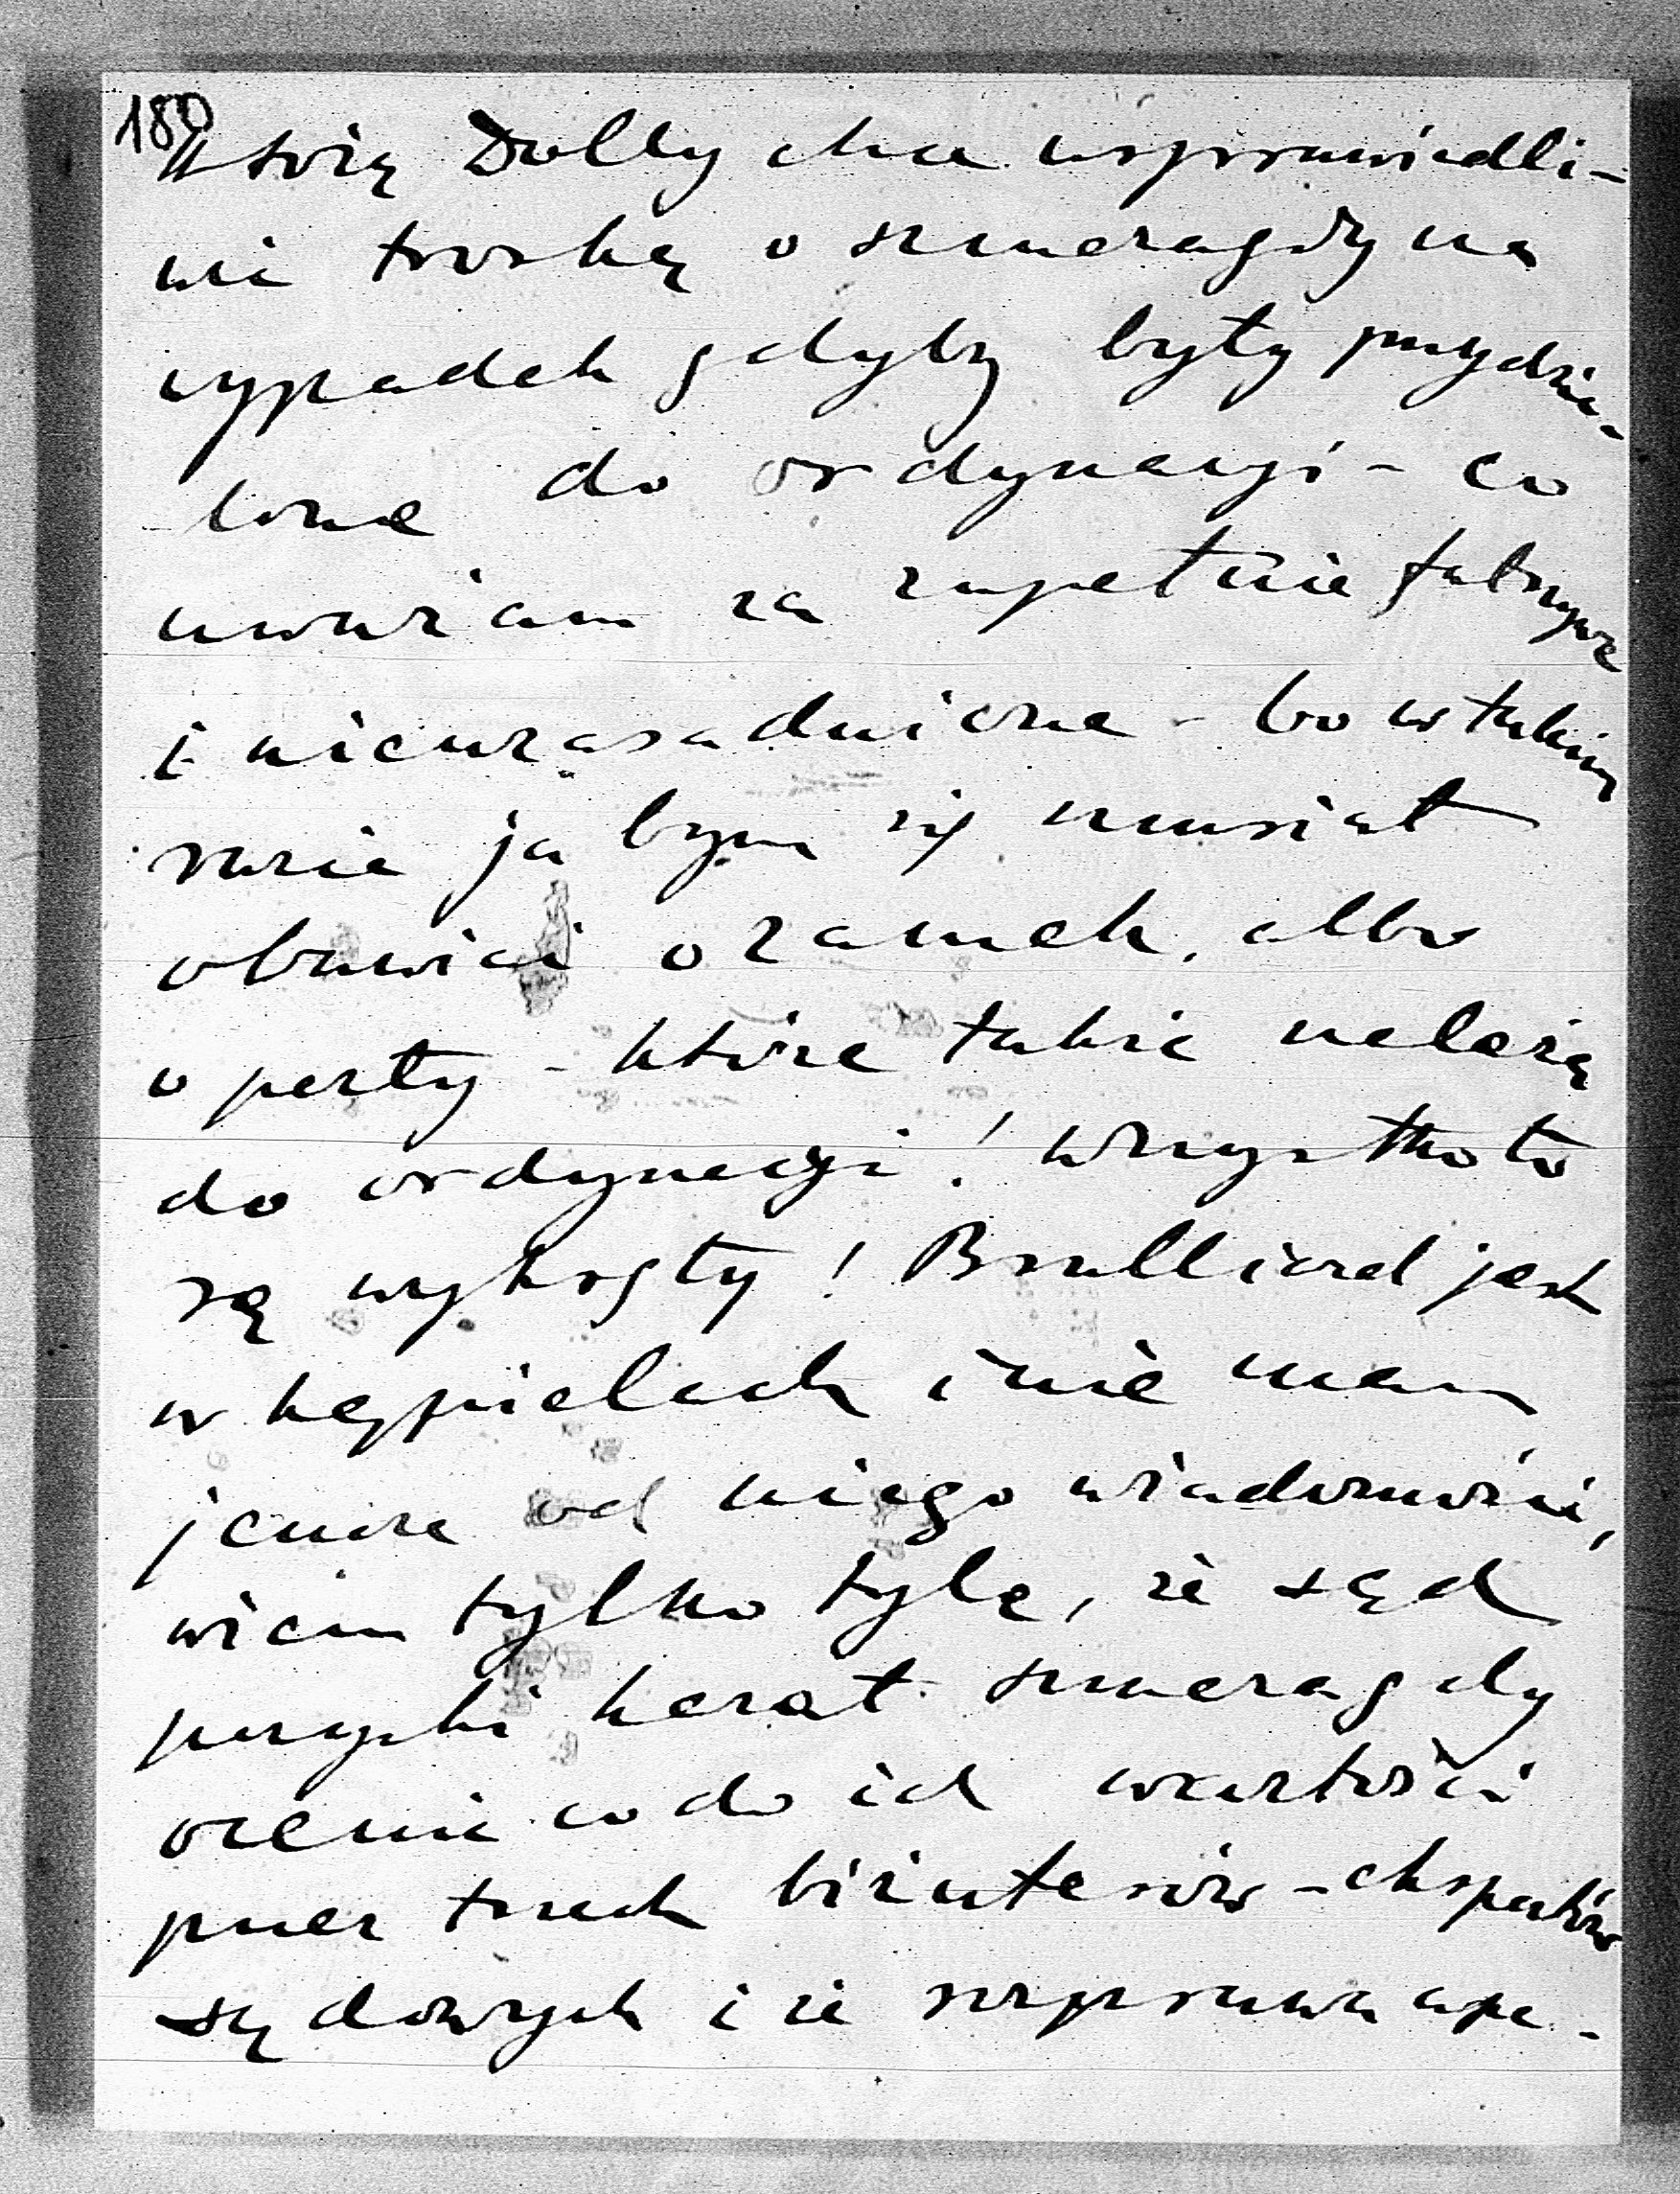 180
którą Dolly chce usprawiedli-
wić troskę o szmeragdy na
wypadek gdyby były przydzie-
lone do ordynacyi - co
uważam za zupełnie fałszywe
i nieuzasadnione - bo w takim
razie ja bym się musiał
obawiać o zamek, albo
o perły - które także należą
do ordynacyi! wszystko to
są wykręty! Brulliard jest
w kąpielach i nie mam
jeszcze od niego wiadomości,
wiem tylko tyle, że sąd
paryski kazał szmeragdy
ocenić co do ich wartości
przez trzech biżuterów - ekspertów
sądowych i że rozprawa ape-